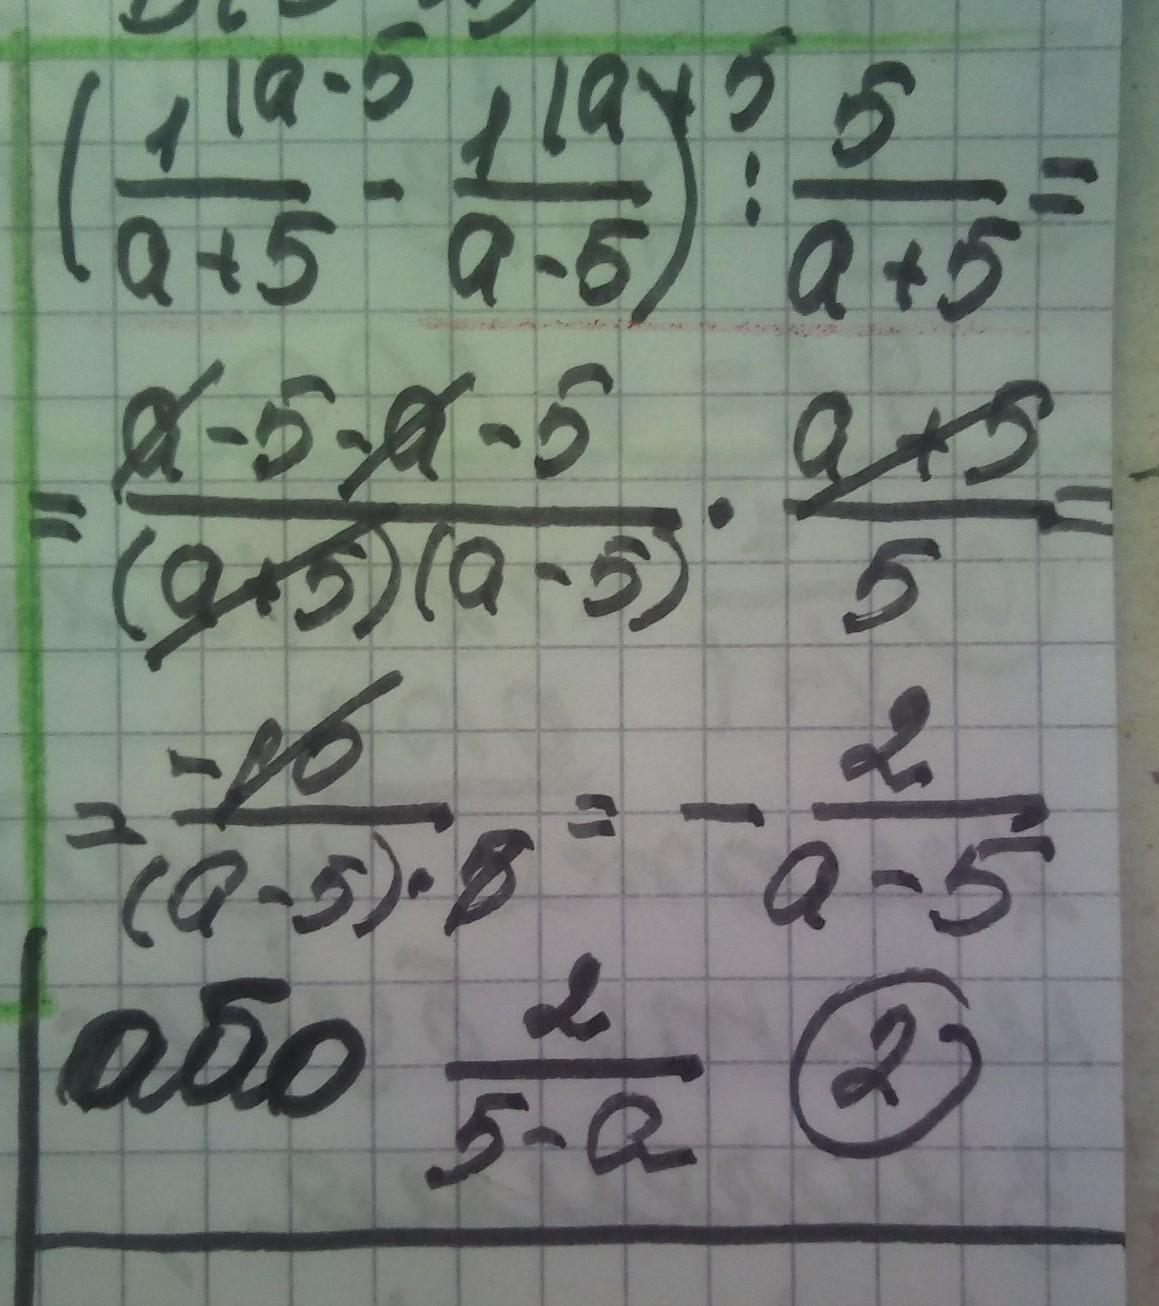 (1/(a+5) |a-5 - 1/(a-5) |a+5) : 5/(a+5) =
= (a-5-a-5)/((a+5)(a-5)) · (a+5)/5 =
= -10/((a-5)·5) = - 2/(a-5)
або 2/(5-a) 2